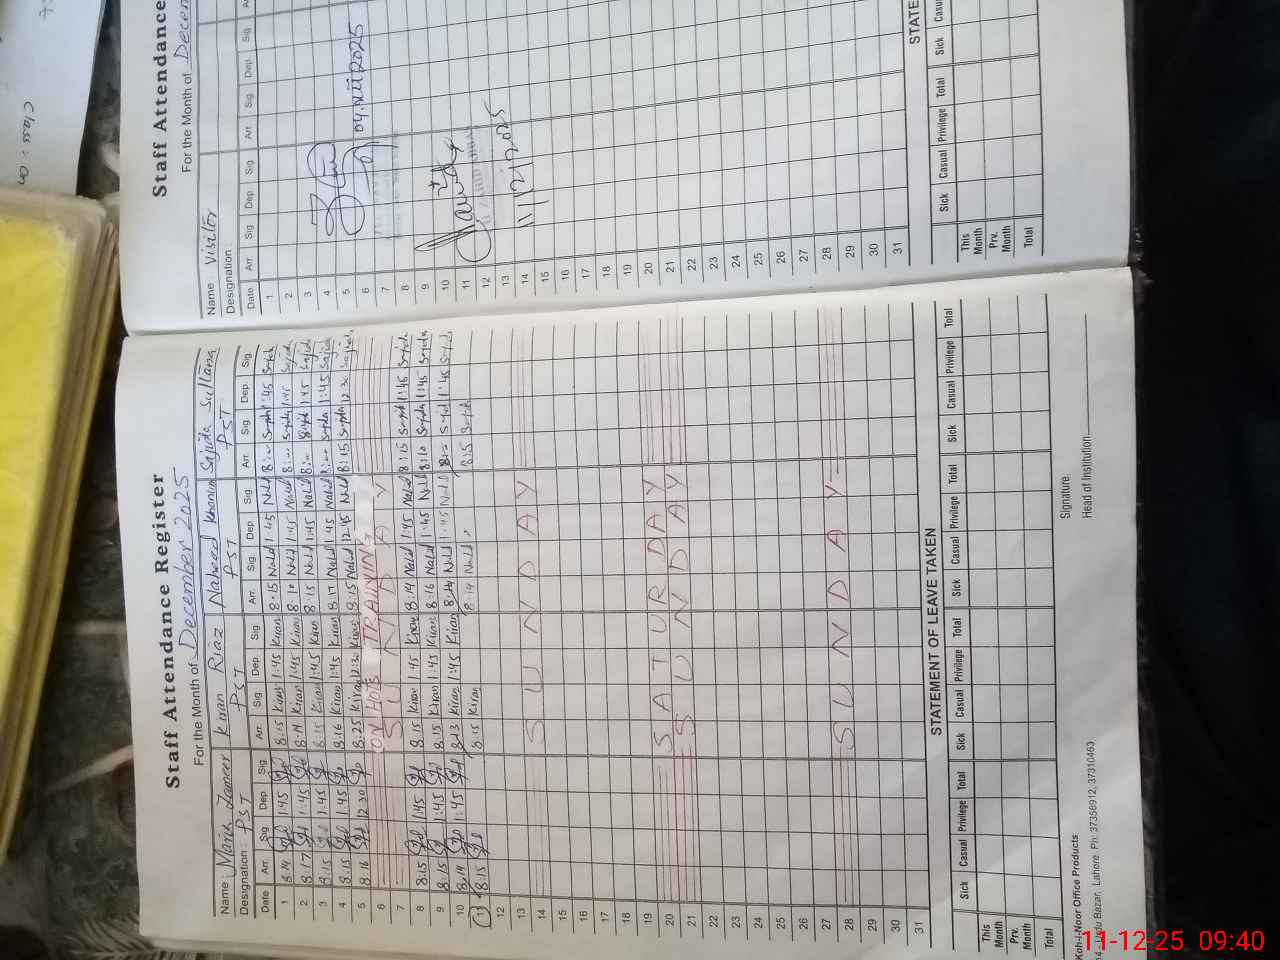 Staff Attendance Register
For the Month of December 2025
Name Maria Zameer Kiran Riaz Naheed Khanum Sajida Sultana
Designation: PST PST PST PST
Date Arr. Sig Dep Sig Arr. Sig Dep Sig Arr. Sig Dep. Sig Arr. Sig Dep. Sig.
1 8:14 1:45 8:15 Kiran 1:45 Kiran 8:15 Nahid 1:45 Nahid 8:00 Sajida 1:45 Sajida
2 8:17 1:45 8:14 Kiran 1:45 Kiran 8:10 Nahid 1:45 Nahid 8:00 Sajida 1:45 Sajida
3 8:15 1:45 8:15 Kiran 1:45 Kiran 8:15 Nahid 1:45 Nahid 8:00 Sajida 1:45 Sajida
4 8:15 1:45 8:16 Kiran 1:45 Kiran 8:17 Nahid 1:45 Nahid 8:00 Sajida 1:45 Sajida
5 8:16 12:30 8:25 Kiran 12:30 Kiran 8:15 Nahid 12:45 Nahid 8:15 Sajida 12:30 Sajida
6 TRAINING
7 SUNDAY
8 8:15 1:45 8:15 Kiran 1:45 Kiran 8:14 Nahid 1:45 Nahid 8:15 Sajida 1:45 Sajida
9 8:15 1:45 8:15 Kiran 1:45 Kiran 8:16 Nahid 1:45 Nahid 8:10 Sajida 1:45 Sajida
10 8:14 1:45 8:13 Kiran 1:45 Kiran 8:14 Nahid 1:45 Nahid 8:00 Sajida 1:45 Sajida
11 8:15 8:15 Kiran 8:14 Nahid 8:15 Sajida
12
13
14 SUNDAY
15
16
17
18
19
20 SATURDAY
21 SUNDAY
22
23
24
25
26
27
28 SUNDAY
29
30
31
STATEMENT OF LEAVE TAKEN
Sick Casual Privilege Total Sick Casual Privilege Total Sick Casual Privilege Total Sick Casual Privilege Total
This Month
Prv. Month
Total
Signature
Head of Institution
Koh-I-Noor Office Products
Urdu Bazar, Lahore. Ph: 37356912, 37310463
Staff Attendance
For the Month of Decem
Name Visitor
Designation:
Date Arr. Sig Dep. Sig Arr. Sig Dep. Sig
1
2
3
4
5
6 04.XII.2025
7
8
9
10
11
12
13
14 11/12/2025
15
16
17
18
19
20
21
22
23
24
25
26
27
28
29
30
31
STATE
Sick Casual Privilege Total Sick Casual
This Month
Prv. Month
Total
Class:
11-12-25 09:40